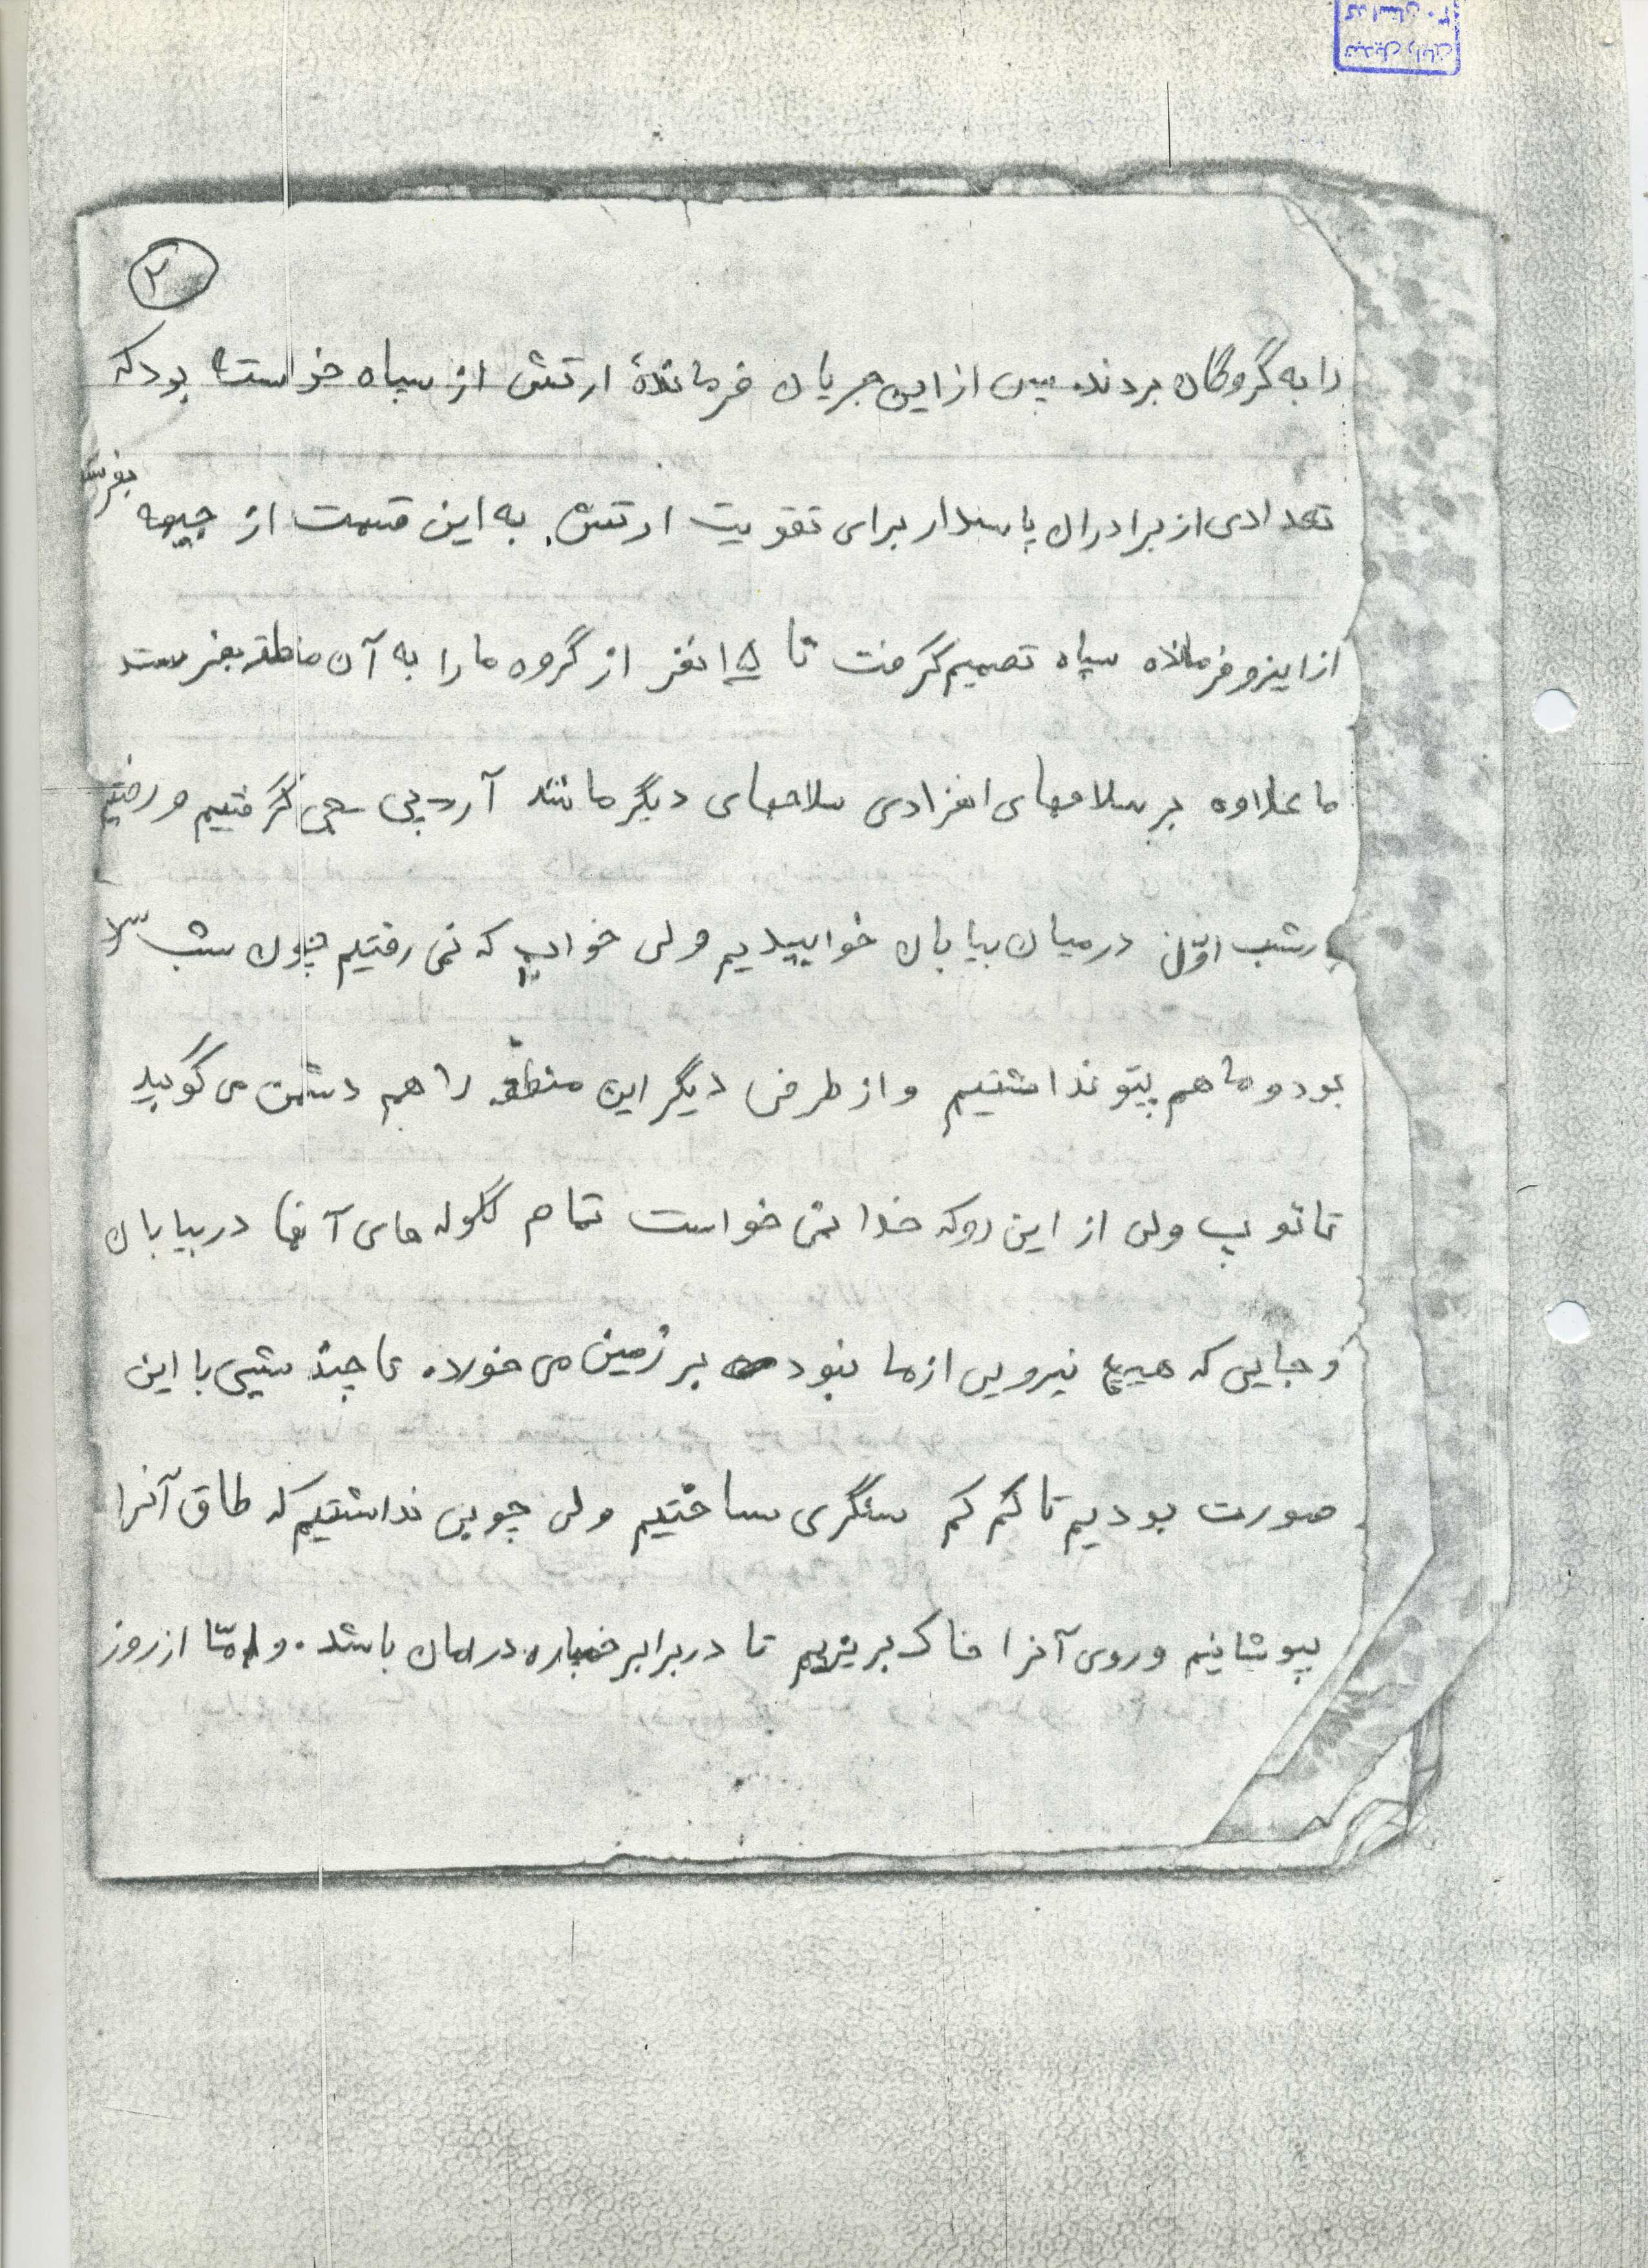 ۲
را به گروگان بردند. پس از این جریان فرماندهٔ ارتش از سپاه خواسته بود که
تعدادی از برادران پاسدار برای تقویت ارتش به این قسمت از جبهه بفرستد
از اینرو فرمانده سپاه تصمیم گرفت تا ۱۵ نفر از گروه ما را به آن منطقه بفرستد
ما علاوه بر سلاحهای انفرادی سلاحهای دیگر مانند آر-پی-جی گرفتیم و رفتیم
شب اوّل در میان بیابان خوابیدیم ولی خواب که نمی رفتیم چون شب سرد
بود و ما هم پتو نداشتیم و از طرفی دیگر این منطقه را هم دشمن می کوبید
با توپ ولی از این رو که خدا نمی خواست تمام گلوله های آنها در بیابان
و جایی که هیچ نیرویی از ما نبود بر زمین می خورد. ما چند شبی با این
صورت بودیم تا کم کم سنگری ساختیم ولی چوبی نداشتیم که طاق آنرا
بپوشانیم و روی آنرا خاک بریزیم تا در برابر خمپاره در امان باشد. و امّا از روز